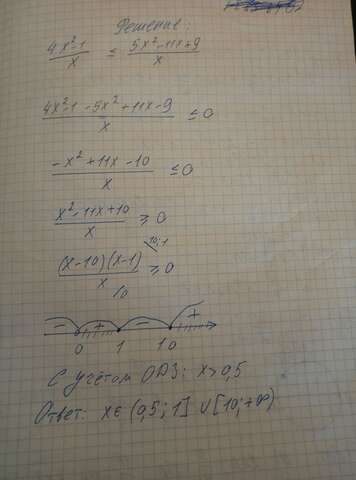 Решение:
4x²-1/x ≤ 5x²-11x+9/x
4x²-1-5x²+11x-9/x ≤ 0
-x²+11x-10/x ≤ 0
x²-11x+10/x ≥ 0
10; 1
(x-10)(x-1)/x ≥ 0
0
- + - +
0 1 10
С учётом ОДЗ: x>0,5
Ответ: x∈(0,5; 1] ∪ [10; +∞)